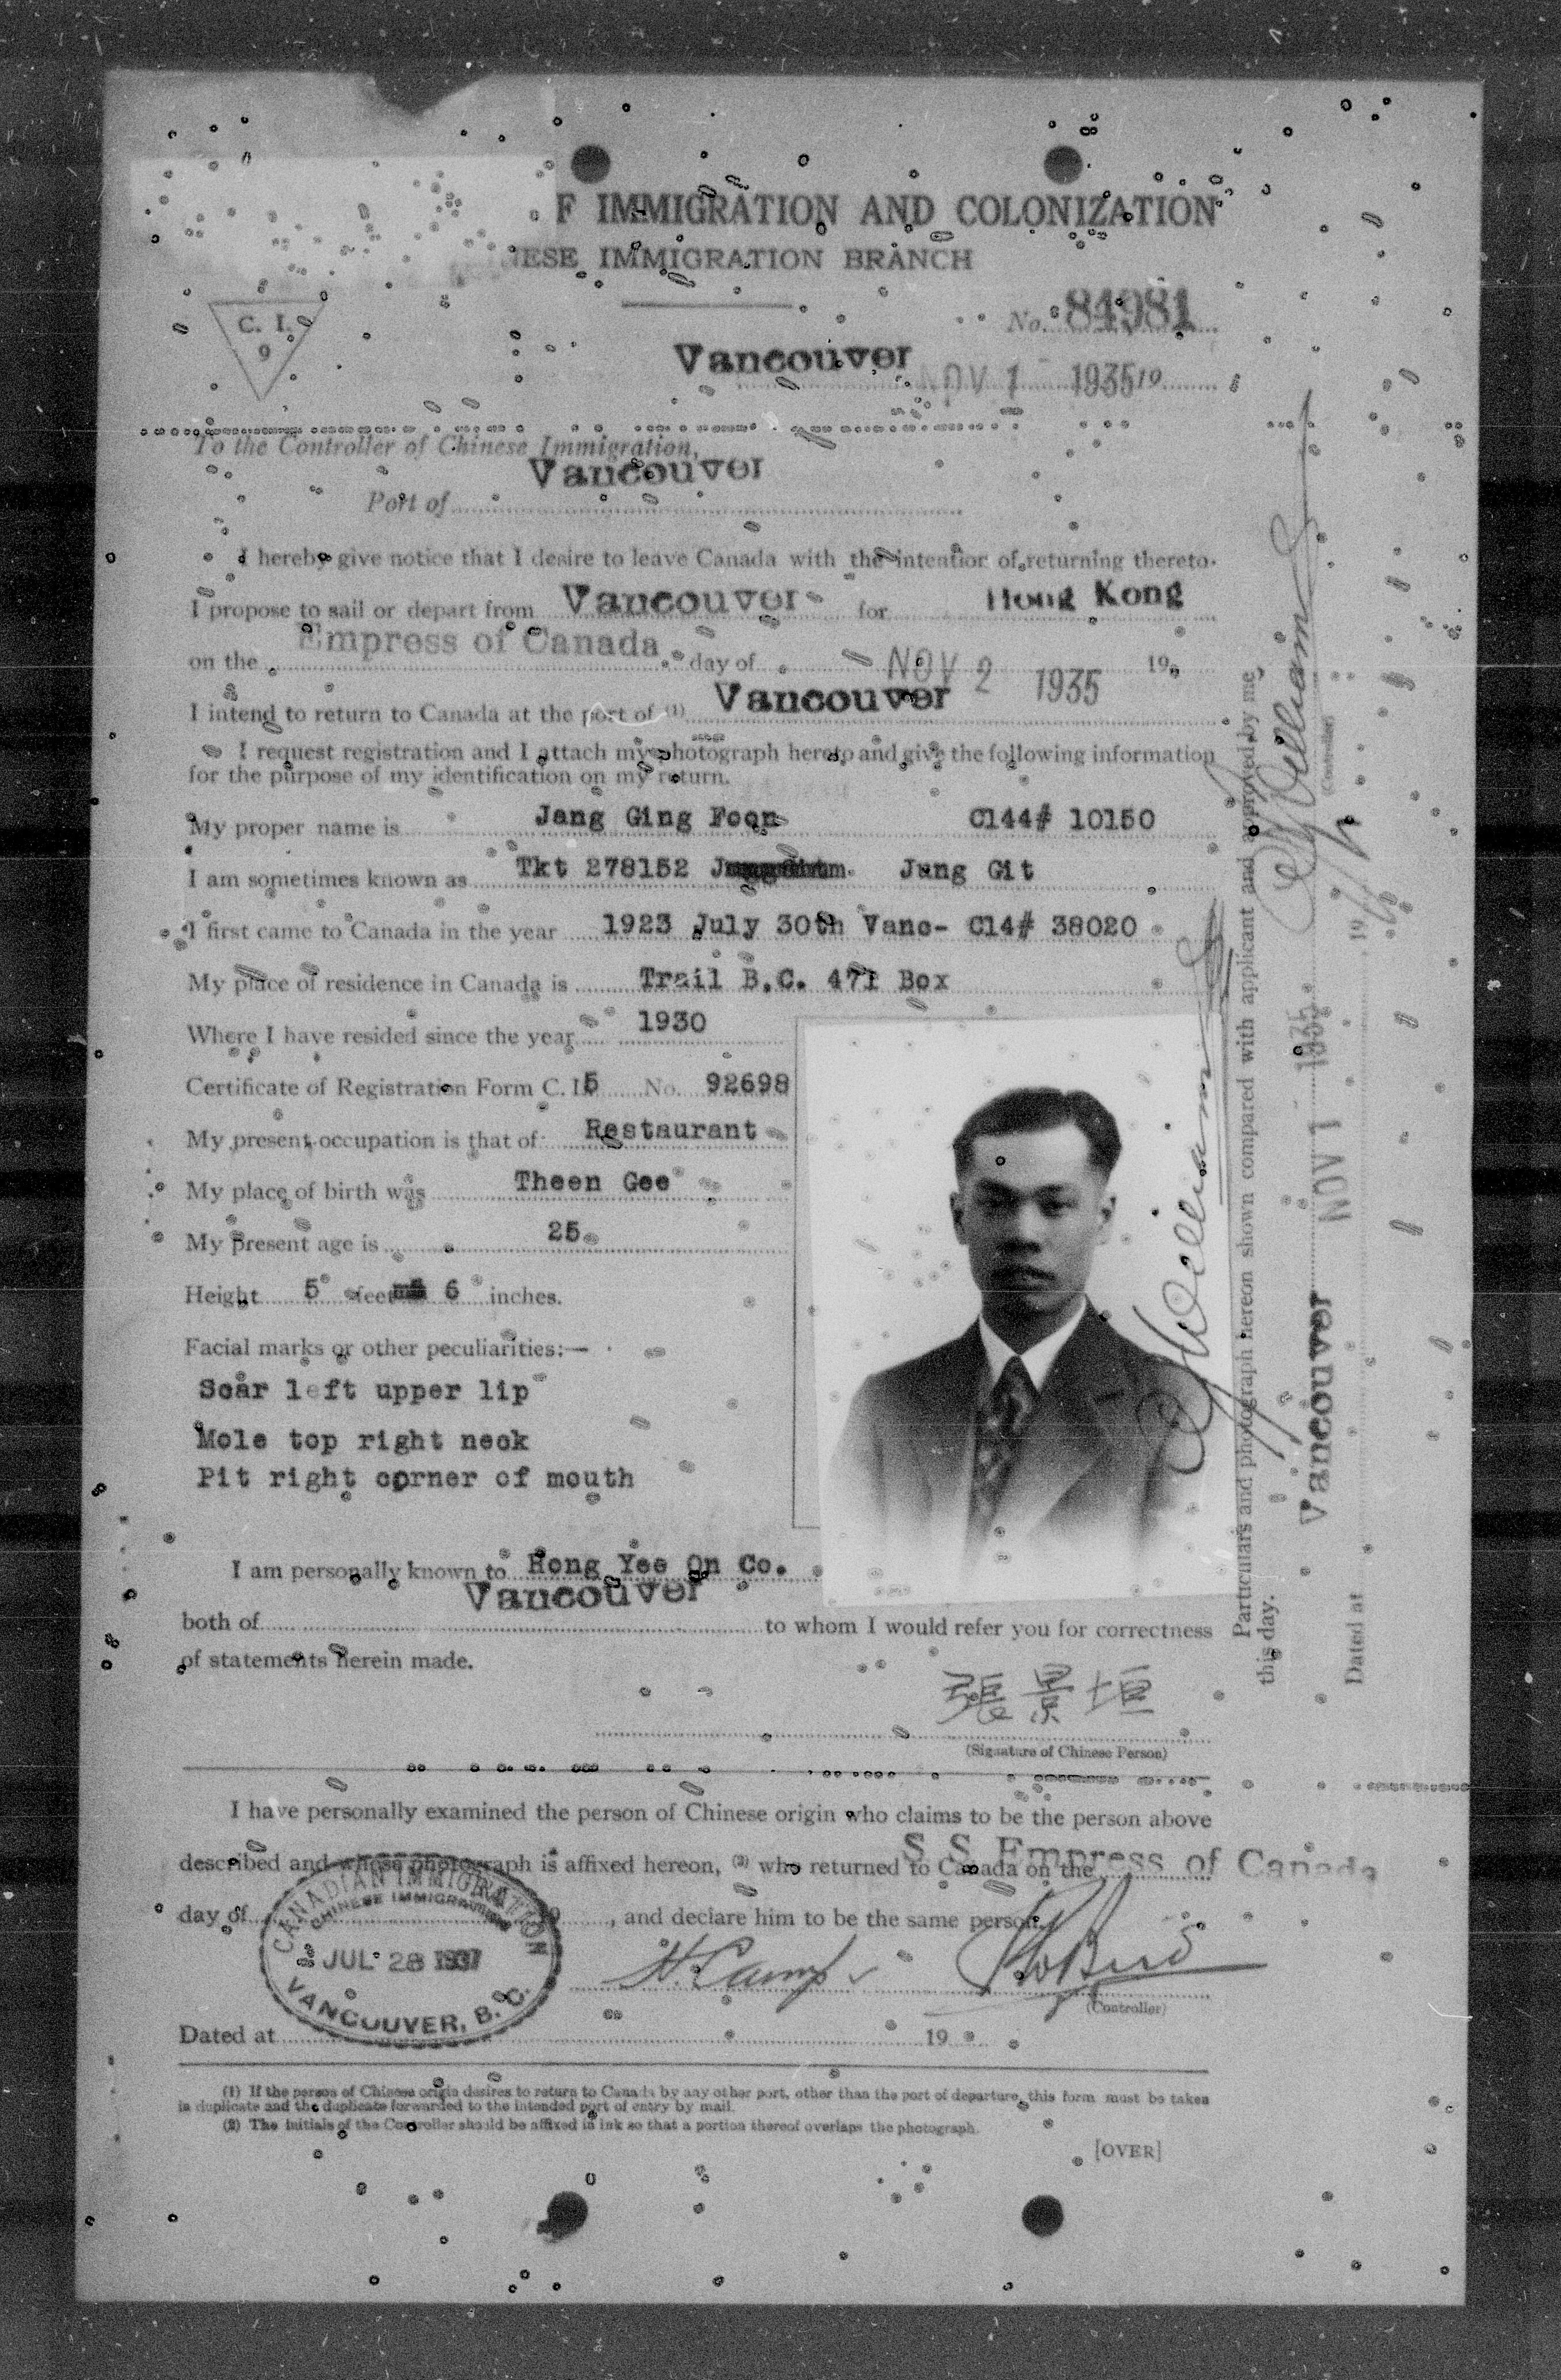 F IMMIGRATION AND COLONIZATION
NESE IMMIGRATION BRANCH
C. I.
9
No. 84981
Vancouver NOV 1 1935 19
To the Controller of Chinese Immigration,
Vancouver
Port of
I hereby give notice that I desire to leave Canada with the intention of returning thereto.
I propose to sail or depart from Vancouver for Hong Kong
on the Empress of Canada day of NOV 2 1935 19
I intend to return to Canada at the port of (1) Vancouver
I request registration and I attach my photograph hereto and give the following information
for the purpose of my identification on my return.
My proper name is Jang Ging Foon C144# 10150
I am sometimes known as Tkt 278152 Jung Git
I first came to Canada in the year 1923 July 30th Vanc- C14# 38020
My place of residence in Canada is Trail B.C. 471 Box
Where I have resided since the year 1930
Certificate of Registration Form C. I. 5 No. 92698
My present occupation is that of Restaurant
My place of birth was Theen Gee
My present age is 25
Height 5 feet 6 inches.
Facial marks or other peculiarities:—
Scar left upper lip
Mole top right neck
Pit right corner of mouth
I am personally known to Hong Yee On Co.
Vancouver
both of to whom I would refer you for correctness
of statements herein made.
張景垣
(Signature of Chinese Person)
I have personally examined the person of Chinese origin who claims to be the person above
described and whose photograph is affixed hereon, (2) who returned to Canada on the S S Empress of Canada
day of 19 , and declare him to be the same person.
CANADIAN IMMIGRATION
CHINESE IMMIGRATION
JUL 28 1937
VANCOUVER, B. C.
(Controller)
Dated at 19
(1) If the person of Chinese origin desires to return to Canada by any other port, other than the port of departure, this form must be taken
in duplicate and the duplicate forwarded to the intended port of entry by mail.
(2) The initials of the Controller should be affixed in ink so that a portion thereof overlaps the photograph.
[OVER]
Particulars and photograph hereon shown compared with applicant and approved by me
this day.
Vancouver NOV 1 1935
(Controller)
Dated at 19